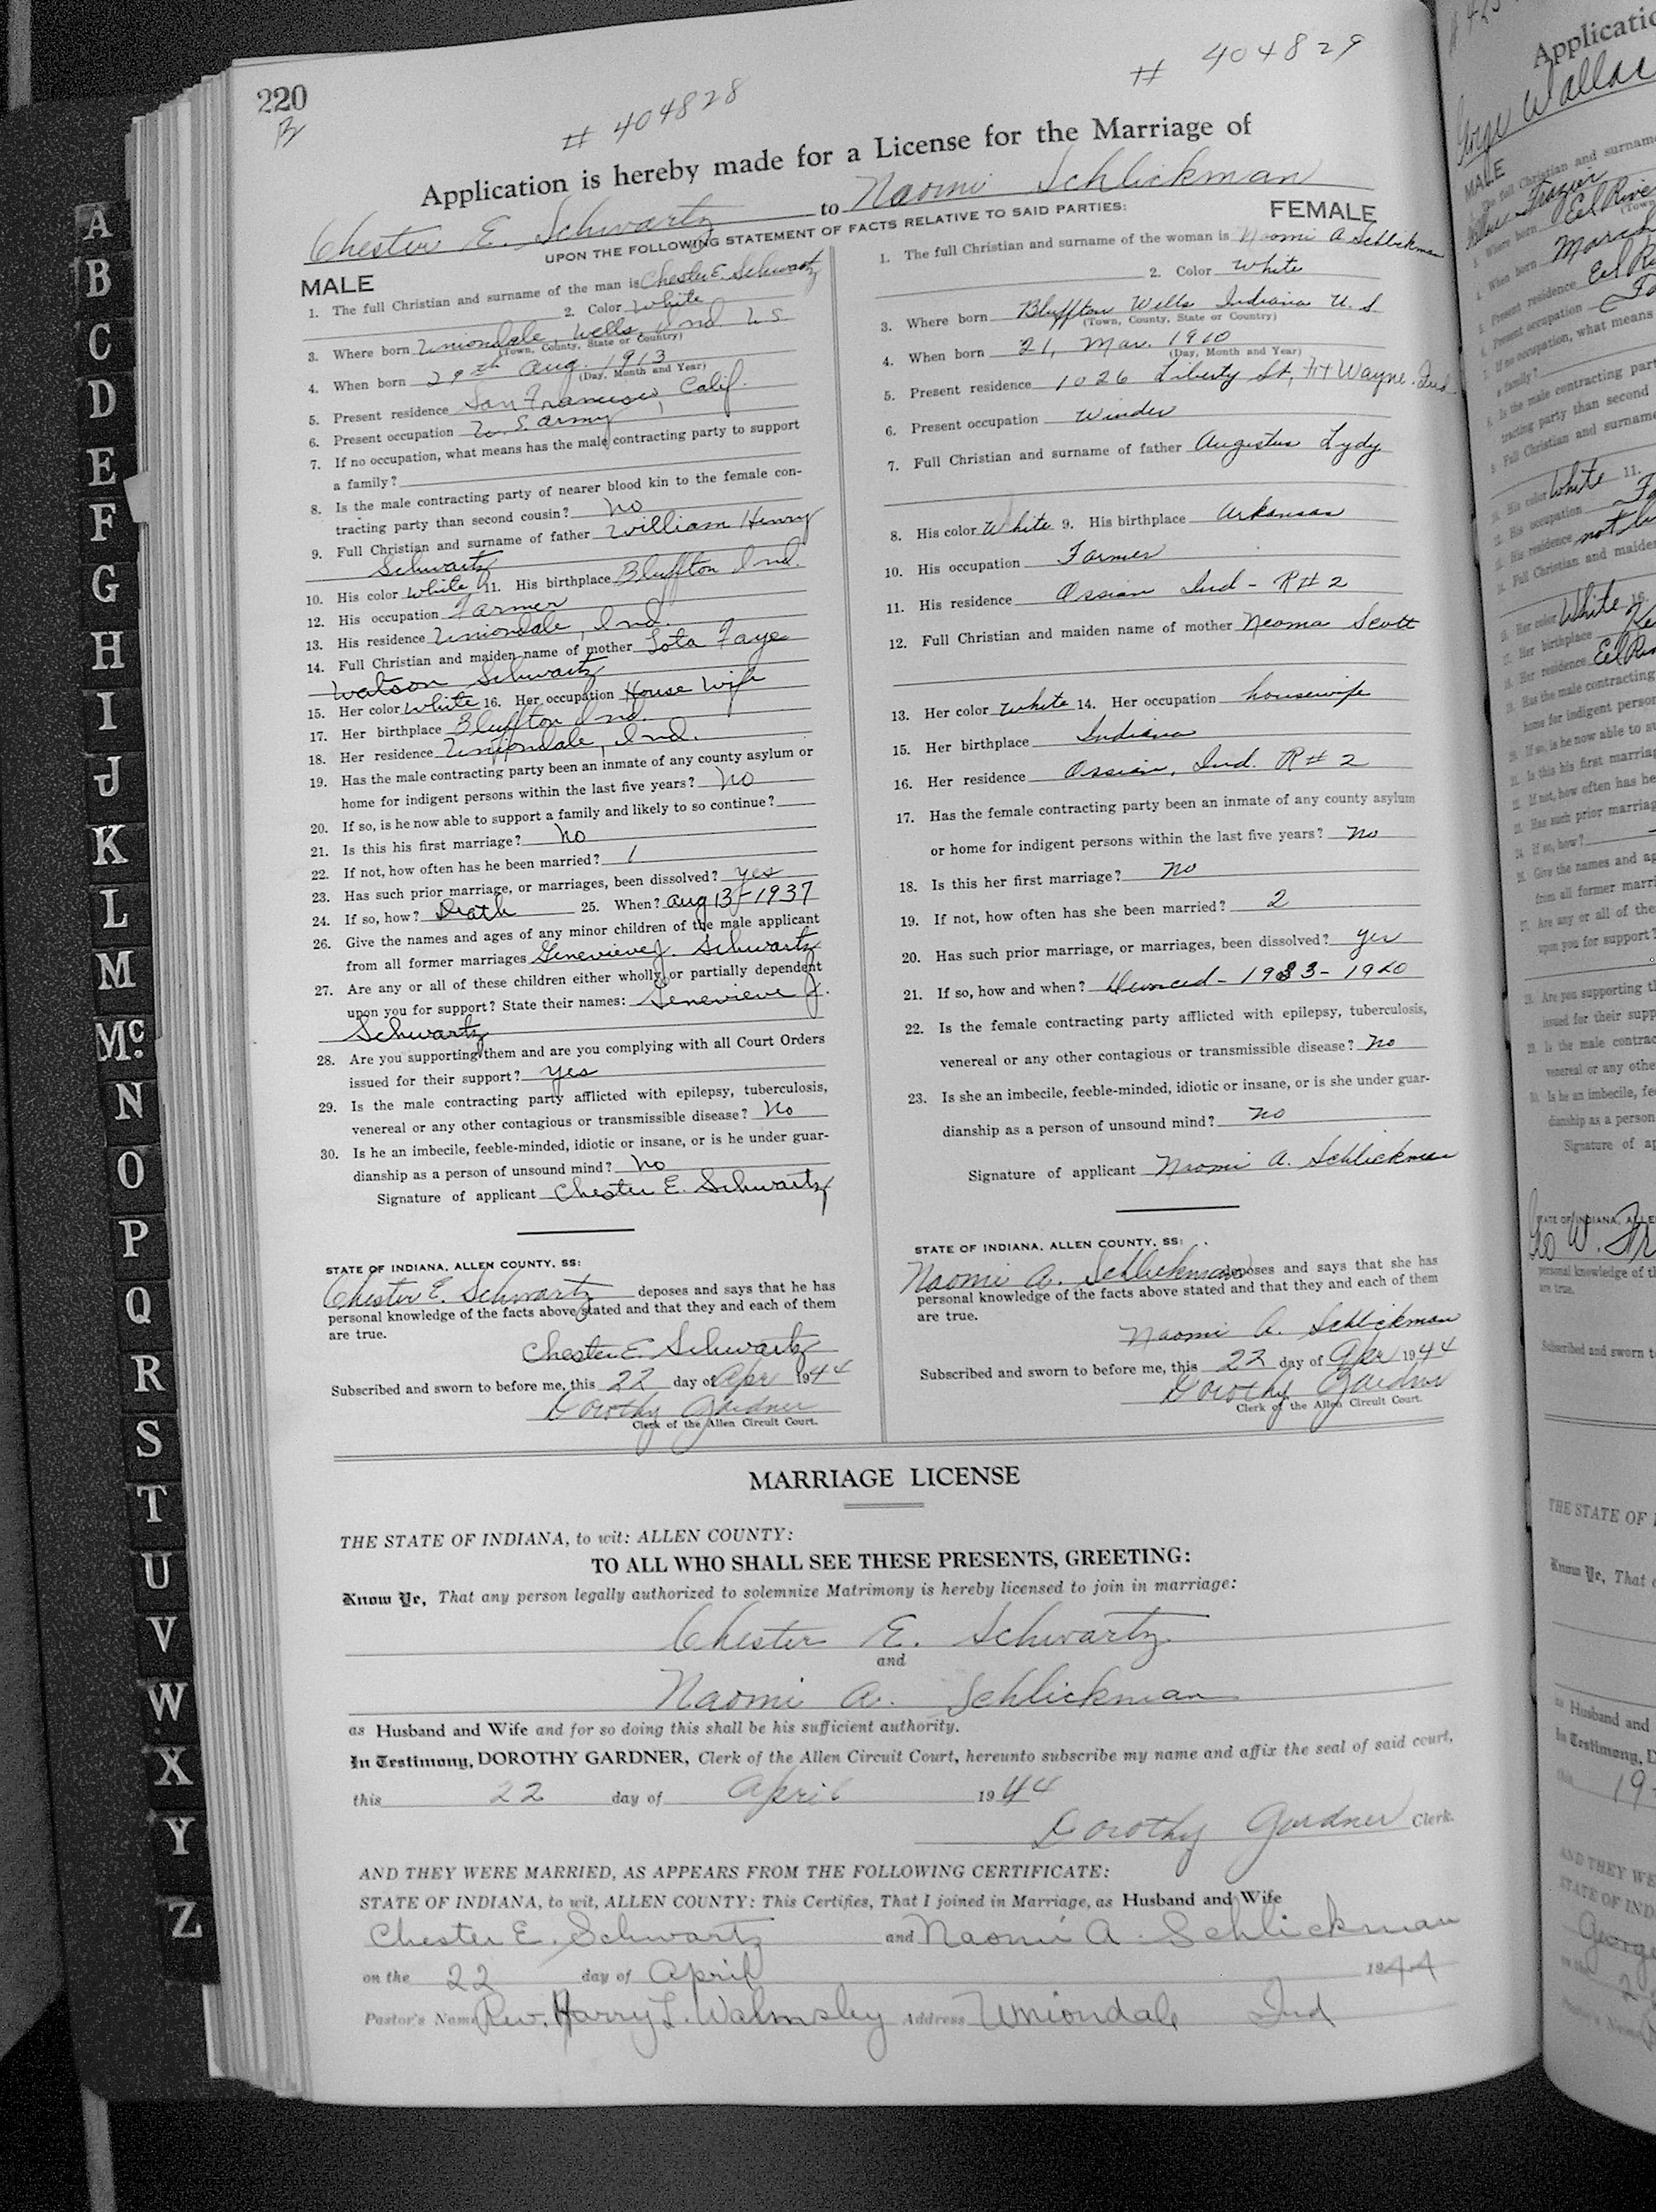 220
# 404828
# 404829
Application is hereby made for a License for the Marriage of
Chester E. Schwartz to Naomi Schlickman
UPON THE FOLLOWING STATEMENT OF FACTS RELATIVE TO SAID PARTIES:
MALE
1. The full Christian and surname of the man is Chester E. Schwartz
2. Color White
3. Where born Uniondale, Wells, Ind. U S
(Town, County, State or Country)
4. When born 29th Aug. 1913
(Day, Month and Year)
5. Present residence San Francisco, Calif.
6. Present occupation U. S Army
7. If no occupation, what means has the male contracting party to support
a family?
8. Is the male contracting party of nearer blood kin to the female con-
tracting party than second cousin? No
9. Full Christian and surname of father William Henry
Schwartz
10. His color White 11. His birthplace Bluffton Ind.
12. His occupation Farmer
13. His residence Uniondale, Ind.
14. Full Christian and maiden name of mother Lota Faye
Watson Schwartz
15. Her color White 16. Her occupation House Wife
17. Her birthplace Bluffton Ind.
18. Her residence Uniondale, Ind.
19. Has the male contracting party been an inmate of any county asylum or
home for indigent persons within the last five years? No
20. If so, is he now able to support a family and likely to so continue?
21. Is this his first marriage? No
22. If not, how often has he been married? 1
23. Has such prior marriage, or marriages, been dissolved? yes
24. If so, how? Death 25. When? Aug 13-1937
26. Give the names and ages of any minor children of the male applicant
from all former marriages Genevieve J. Schwartz
27. Are any or all of these children either wholly or partially dependent
upon you for support? State their names: Genevieve J.
Schwartz
28. Are you supporting them and are you complying with all Court Orders
issued for their support? yes
29. Is the male contracting party afflicted with epilepsy, tuberculosis,
venereal or any other contagious or transmissible disease? No
30. Is he an imbecile, feeble-minded, idiotic or insane, or is he under guar-
dianship as a person of unsound mind? No
Signature of applicant Chester E. Schwartz
STATE OF INDIANA, ALLEN COUNTY, SS:
Chester E. Schwartz deposes and says that he has
personal knowledge of the facts above stated and that they and each of them
are true.
Chester E. Schwartz
Subscribed and sworn to before me, this 22 day of Apr 1944
Dorothy Gardner
Clerk of the Allen Circuit Court.
FEMALE
1. The full Christian and surname of the woman is Naomi A Schlickman
2. Color White
3. Where born Bluffton Wells Indiana U. S
(Town, County, State or Country)
4. When born 21, Mar. 1910
(Day, Month and Year)
5. Present residence 1026 Liberty St, Ft Wayne. Ind
6. Present occupation Winder
7. Full Christian and surname of father Augustus Lydy
8. His color White 9. His birthplace Arkansas
10. His occupation Farmer
11. His residence Ossian Ind - R#2
12. Full Christian and maiden name of mother Neoma Scott
13. Her color White 14. Her occupation housewife
15. Her birthplace Indiana
16. Her residence Ossian, Ind. R#2
17. Has the female contracting party been an inmate of any county asylum
or home for indigent persons within the last five years? no
18. Is this her first marriage? no
19. If not, how often has she been married? 2
20. Has such prior marriage, or marriages, been dissolved? yes
21. If so, how and when? Divorced - 1933 - 1940
22. Is the female contracting party afflicted with epilepsy, tuberculosis,
venereal or any other contagious or transmissible disease? no
23. Is she an imbecile, feeble-minded, idiotic or insane, or is she under guar-
dianship as a person of unsound mind? no
Signature of applicant Naomi A. Schlickman
STATE OF INDIANA, ALLEN COUNTY, SS:
Naomi A. Schlickman deposes and says that she has
personal knowledge of the facts above stated and that they and each of them
are true.
Naomi A. Schlickman
Subscribed and sworn to before me, this 22 day of Apr 1944
Dorothy Gardner
Clerk of the Allen Circuit Court.
MARRIAGE LICENSE
THE STATE OF INDIANA, to wit: ALLEN COUNTY:
TO ALL WHO SHALL SEE THESE PRESENTS, GREETING:
Know Ye, That any person legally authorized to solemnize Matrimony is hereby licensed to join in marriage:
Chester E. Schwartz
and
Naomi A. Schlickman
as Husband and Wife and for so doing this shall be his sufficient authority.
In Testimony, DOROTHY GARDNER, Clerk of the Allen Circuit Court, hereunto subscribe my name and affix the seal of said court,
this 22 day of April 1944
Dorothy Gardner Clerk.
AND THEY WERE MARRIED, AS APPEARS FROM THE FOLLOWING CERTIFICATE:
STATE OF INDIANA, to wit, ALLEN COUNTY: This Certifies, That I joined in Marriage, as Husband and Wife
Chester E. Schwartz and Naomi A. Schlickman
on the 22 day of April 1944
Pastor's Name Rev. Harry L. Walmsley Address Uniondale Ind
A
B
C
D
E
F
G
H
I
J
K
L
M
Mc.
N
O
P
Q
R
S
T
U
V
W
X
Y
Z